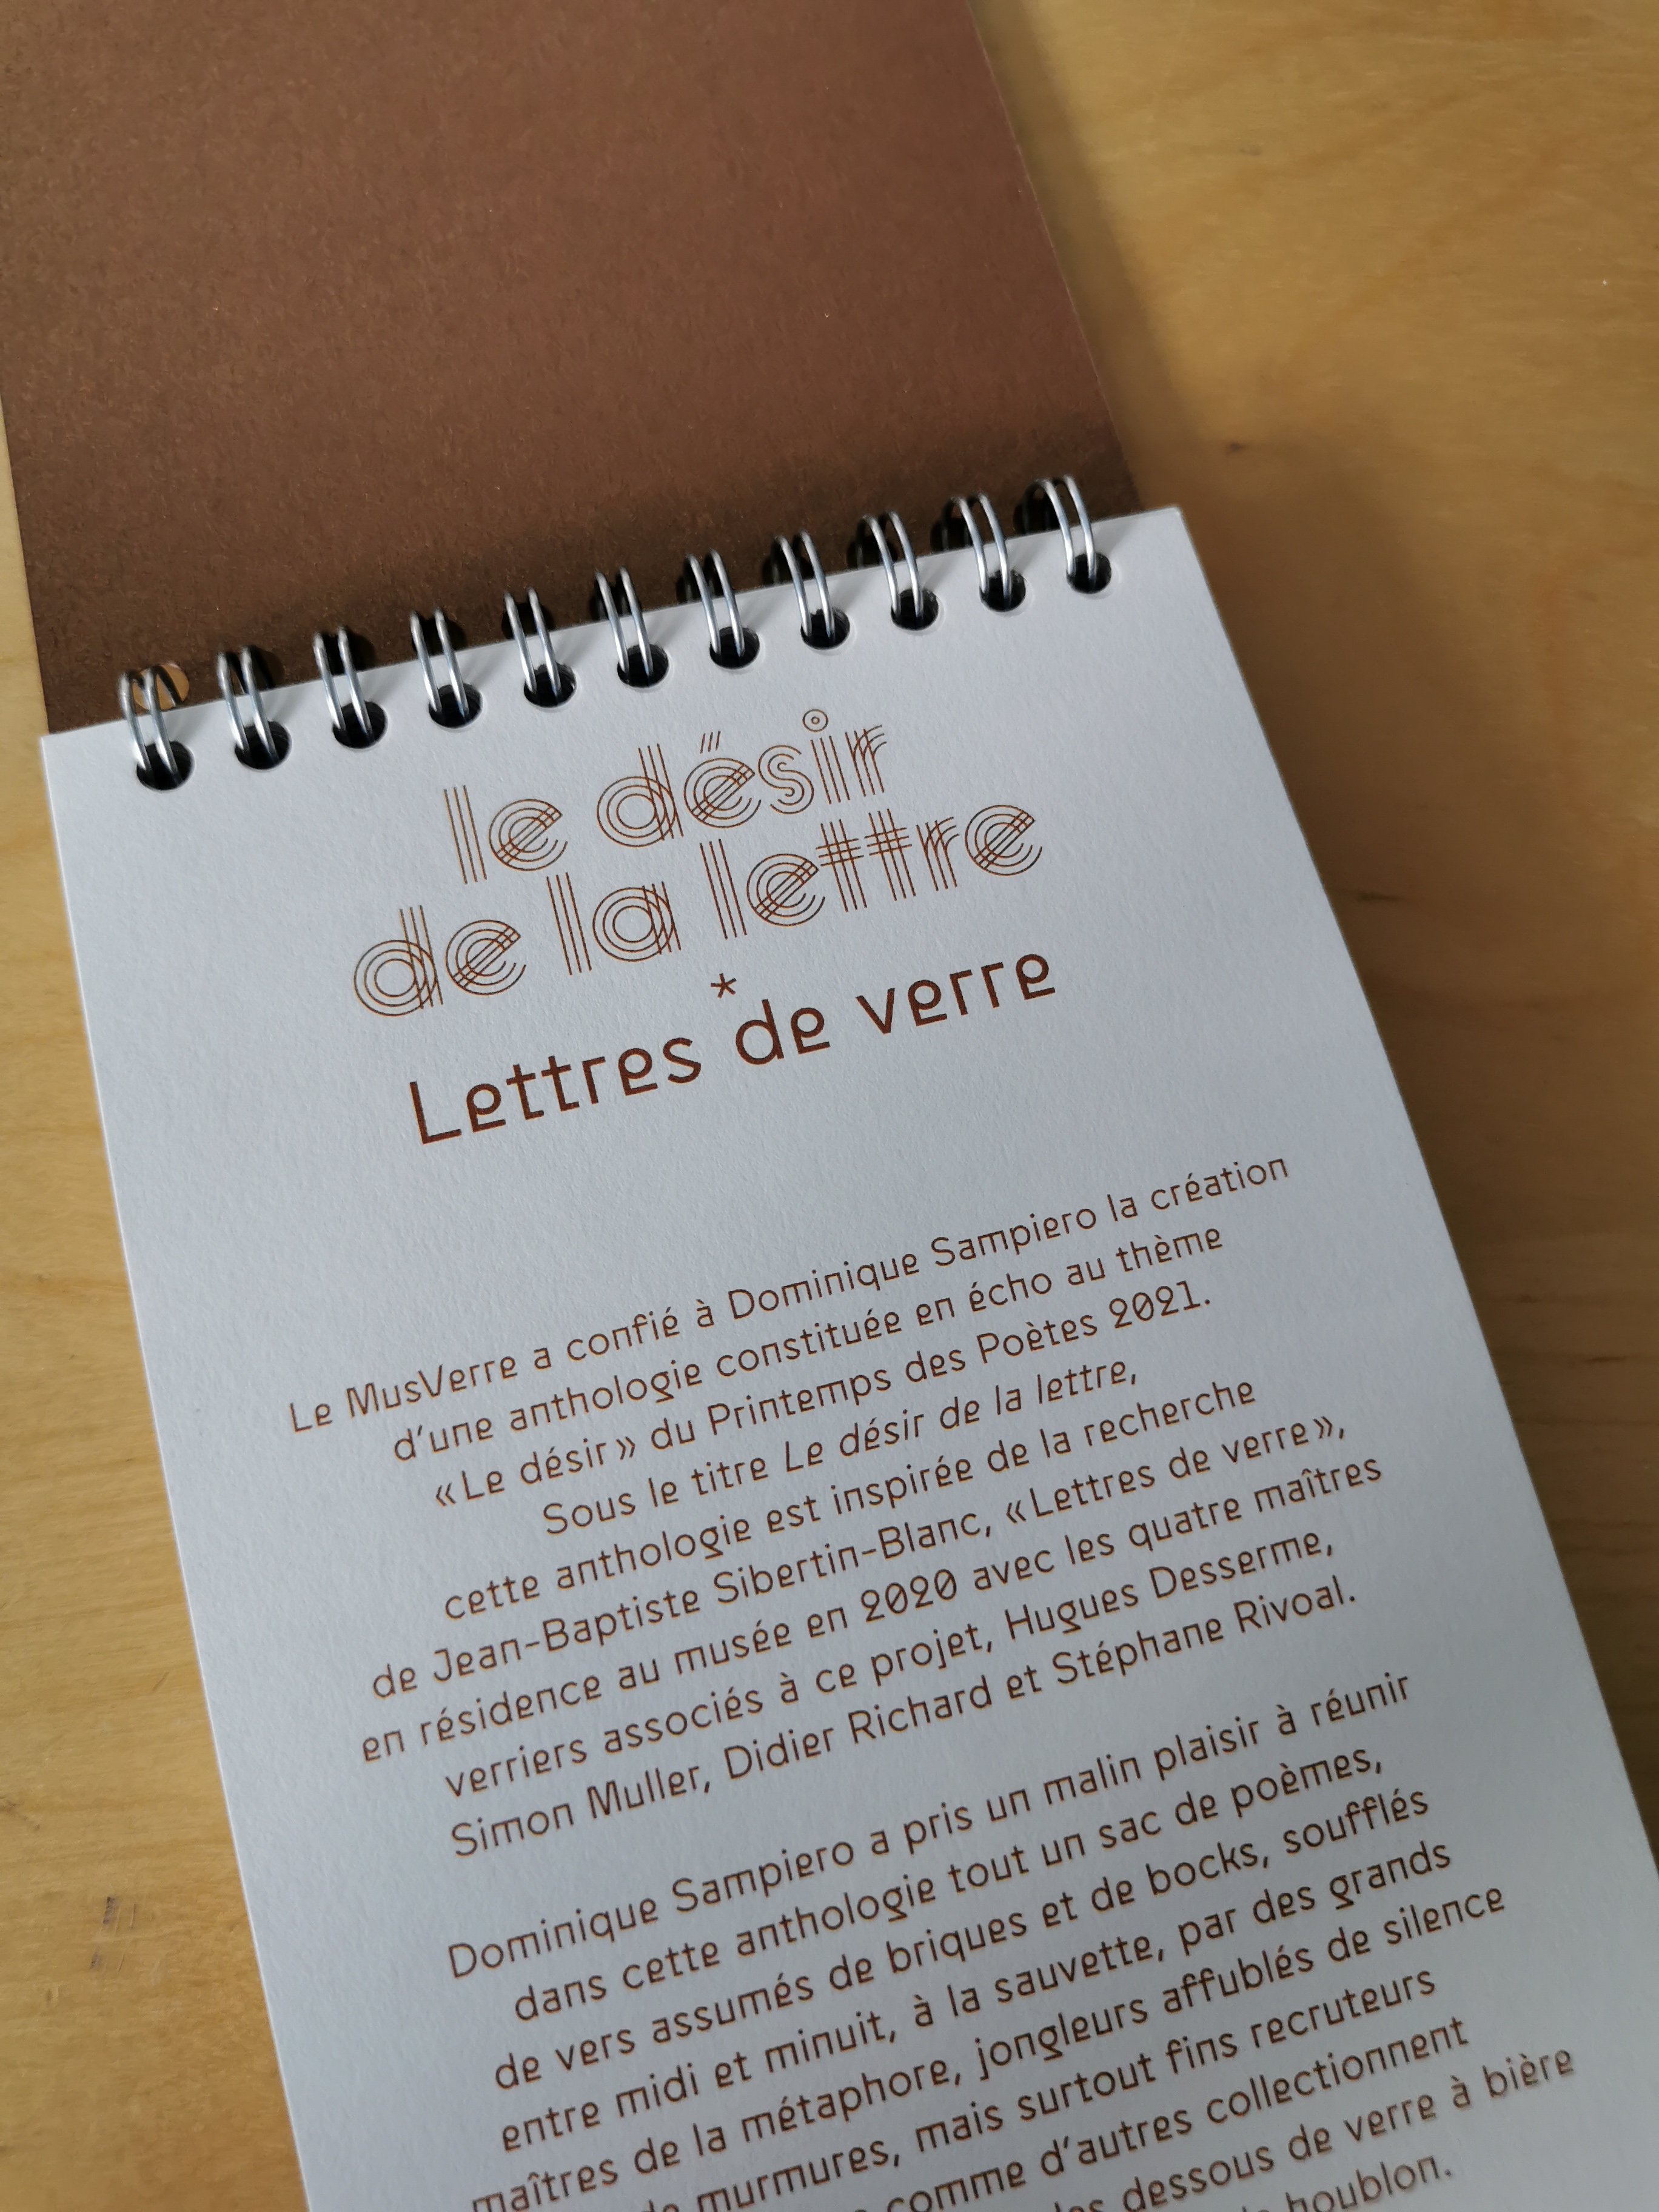 le désir
de la lettre
*
Lettres de verre
Le MusVerre a confié à Dominique Sampiero la création
d'une anthologie constituée en écho au thème
« Le désir » du Printemps des Poètes 2021.
Sous le titre Le désir de la lettre,
cette anthologie est inspirée de la recherche
de Jean-Baptiste Sibertin-Blanc, « Lettres de verre »,
en résidence au musée en 2020 avec les quatre maîtres
verriers associés à ce projet, Hugues Desserme,
Simon Muller, Didier Richard et Stéphane Rivoal.
Dominique Sampiero a pris un malin plaisir à réunir
dans cette anthologie tout un sac de poèmes,
de vers assumés de briques et de bocks, soufflés
entre midi et minuit, à la sauvette, par des grands
maîtres de la métaphore, jongleurs affublés de silence
murmures, mais surtout fins recruteurs
comme d'autres collectionnent
dessous de verre à bière
houblon.